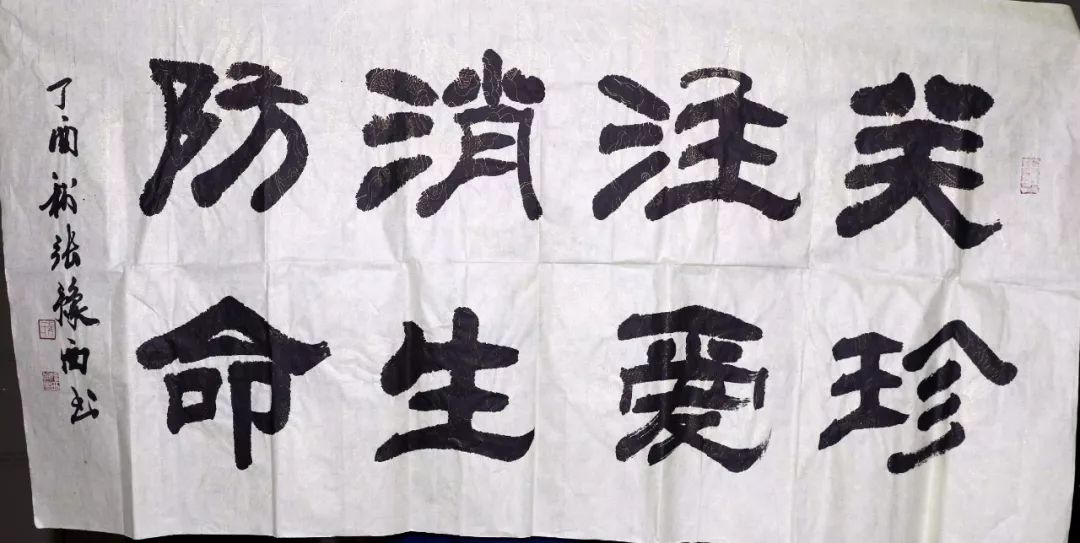 关注消防
珍爱生命
丁酉秋张豫西书